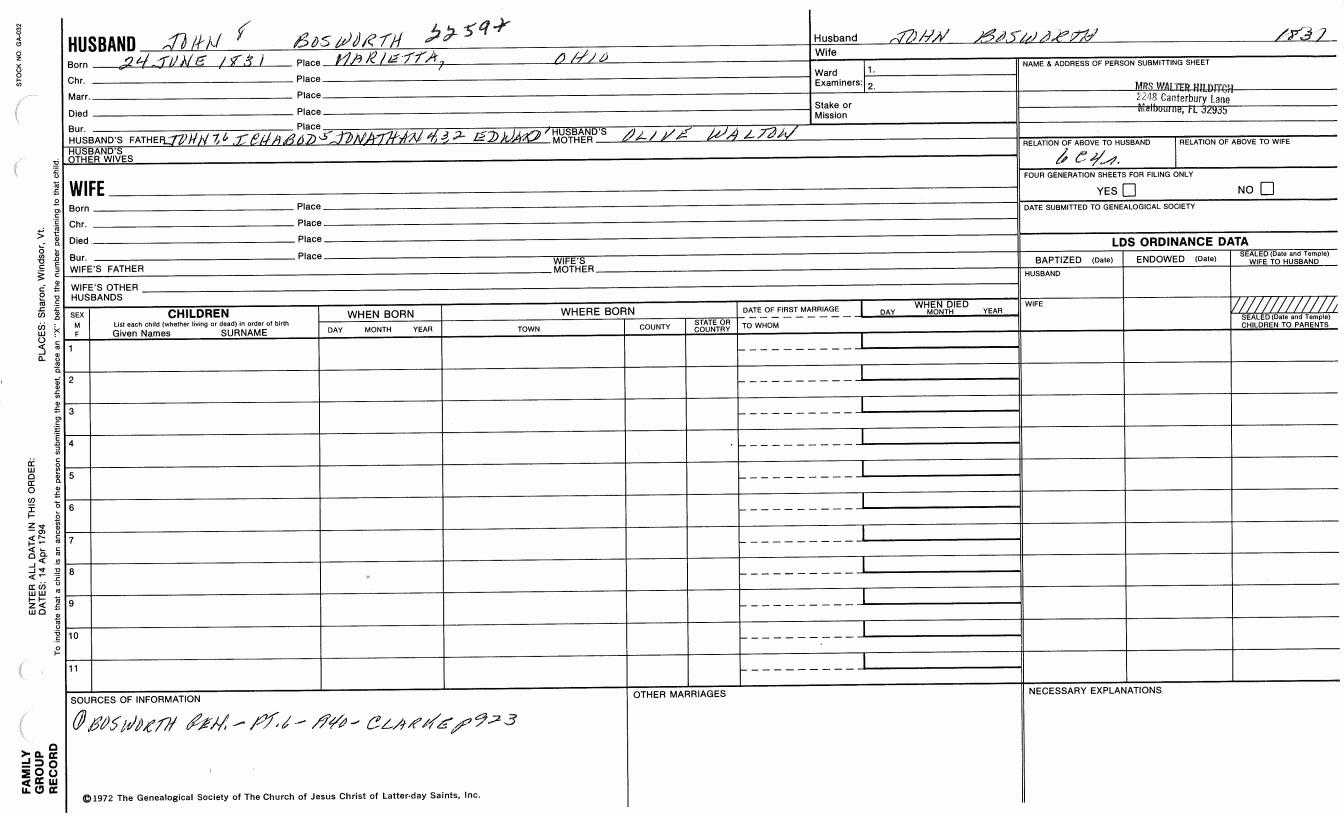 STOCK NO. GA-032
HUSBAND JOHN 8 BOSWORTH 32597
Born 24 JUNE 1831 Place MARIETTA, OHIO
Chr. Place
Marr. Place
Died Place
Bur. Place
HUSBAND'S FATHER JOHN 7,6 ICHABOD 5 JONATHAN 4,3,2 EDWARD 1 HUSBAND'S MOTHER OLIVE WALTON
HUSBAND'S OTHER WIVES
Husband JOHN BOSWORTH 1831
Wife
Ward Examiners: 1. 2.
Stake or Mission
NAME & ADDRESS OF PERSON SUBMITTING SHEET
MRS WALTER HILDITCH
2248 Canterbury Lane
Melbourne, FL 32935
RELATION OF ABOVE TO HUSBAND RELATION OF ABOVE TO WIFE
6C4r.
FOUR GENERATION SHEETS FOR FILING ONLY
YES NO
DATE SUBMITTED TO GENEALOGICAL SOCIETY
WIFE
Born Place
Chr. Place
Died Place
Bur. Place
WIFE'S FATHER WIFE'S MOTHER
WIFE'S OTHER HUSBANDS
LDS ORDINANCE DATA
BAPTIZED (Date) ENDOWED (Date) SEALED (Date and Temple) WIFE TO HUSBAND
HUSBAND
WIFE
SEALED (Date and Temple) CHILDREN TO PARENTS
SEX M F
CHILDREN
List each child (whether living or dead) in order of birth
Given Names SURNAME
WHEN BORN
DAY MONTH YEAR
WHERE BORN
TOWN COUNTY STATE OR COUNTRY
DATE OF FIRST MARRIAGE
TO WHOM
WHEN DIED
DAY MONTH YEAR
1
2
3
4
5
6
7
8
9
10
11
SOURCES OF INFORMATION
① BOSWORTH GEN. - PT.6 - R40 - CLARKE p923
OTHER MARRIAGES
NECESSARY EXPLANATIONS
©1972 The Genealogical Society of The Church of Jesus Christ of Latter-day Saints, Inc.
FAMILY GROUP RECORD
ENTER ALL DATA IN THIS ORDER:
DATES: 14 Apr 1794 PLACES: Sharon, Windsor, Vt.
To indicate that a child is an ancestor of the person submitting the sheet, place an "X" behind the number pertaining to that child.